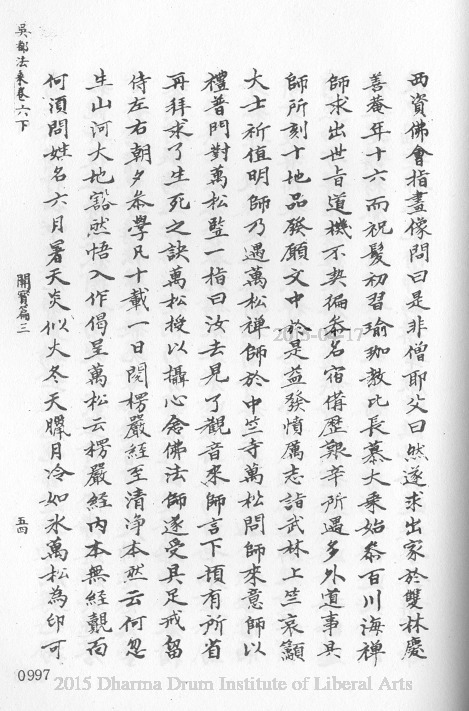 西資佛會指畫像問曰是非僧耶父曰然遂求出家於雙林慶
善菴年十六而祝髮初習瑜珈教比長慕大乘始叅百川海禪
師求出世旨道機不契徧叅名宿備歷艱辛所遇多外道事具
師所刻十地品發願文中於是益發憤厲志詣武林上竺哀籲
大士祈值明師乃遇萬松禅師於中竺寺萬松問師來意師以
禮普門對萬松竪一指曰汝去見了觀音來師言下頃有所省
再拜求了生死之訣萬松授以攝心念佛法師遂受具足戒留
侍左右朝夕叅學凡十載一日閱楞嚴經至清净本然云何忽
生山河大地豁然悟入作偈呈萬松云楞嚴經內本無經覿面
何須問姓名六月暑天炎似火冬天臘月冷如氷萬松為印可
吳都法乘卷六下
開賢篇三
五四
0997
2015-04-17
2015 Dharma Drum Institute of Liberal Arts